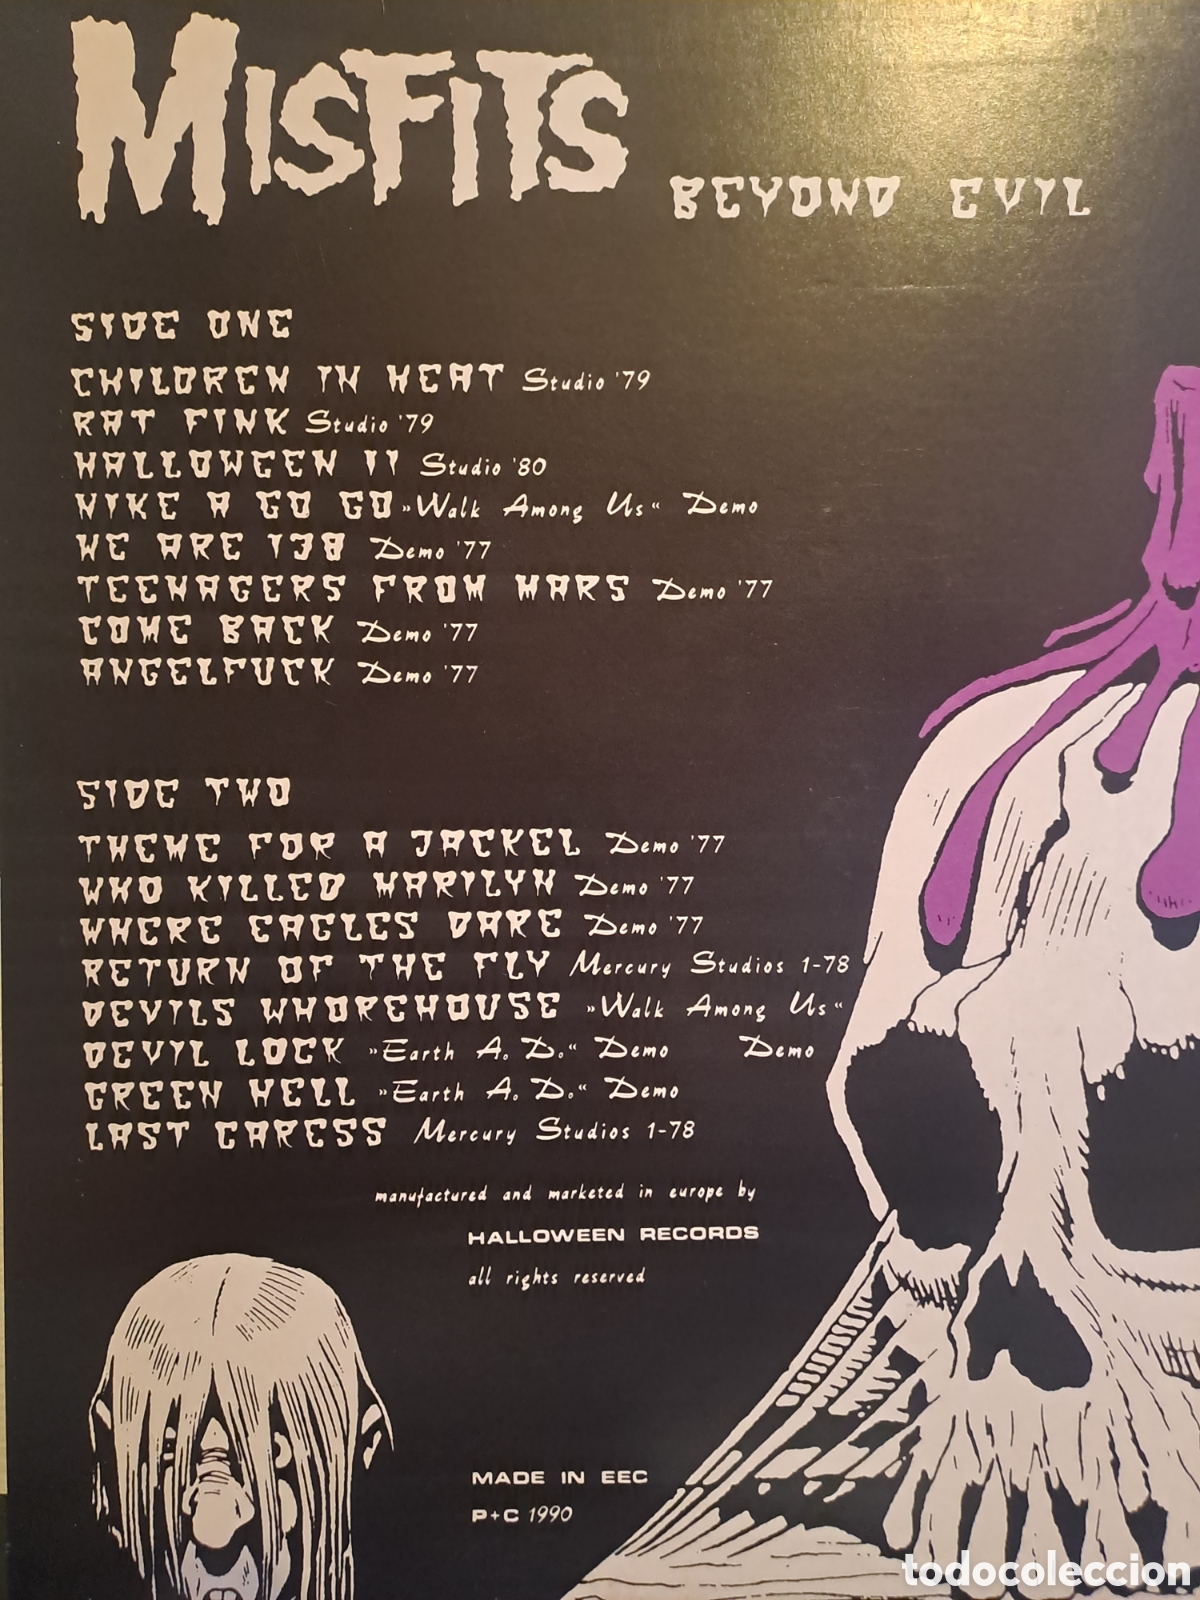 MISFITS
BEYOND EVIL
SIDE ONE
CHILDREN IN HEAT Studio '79
RAT FINK Studio '79
HALLOWEEN II Studio '80
NIKE A GO GO »Walk Among Us« Demo
WE ARE 138 Demo '77
TEENAGERS FROM MARS Demo '77
COME BACK Demo '77
ANGELFUCK Demo '77
SIDE TWO
THEME FOR A JACKEL Demo '77
WHO KILLED MARILYN Demo '77
WHERE EAGLES DARE Demo '77
RETURN OF THE FLY Mercury Studios 1-78
DEVILS WHOREHOUSE »Walk Among Us«
DEVIL LOCK »Earth A. D.« Demo Demo
GREEN HELL »Earth A. D.« Demo
LAST CARESS Mercury Studios 1-78
manufactured and marketed in europe by
HALLOWEEN RECORDS
all rights reserved
MADE IN EEC
P+C 1990
todocoleccion